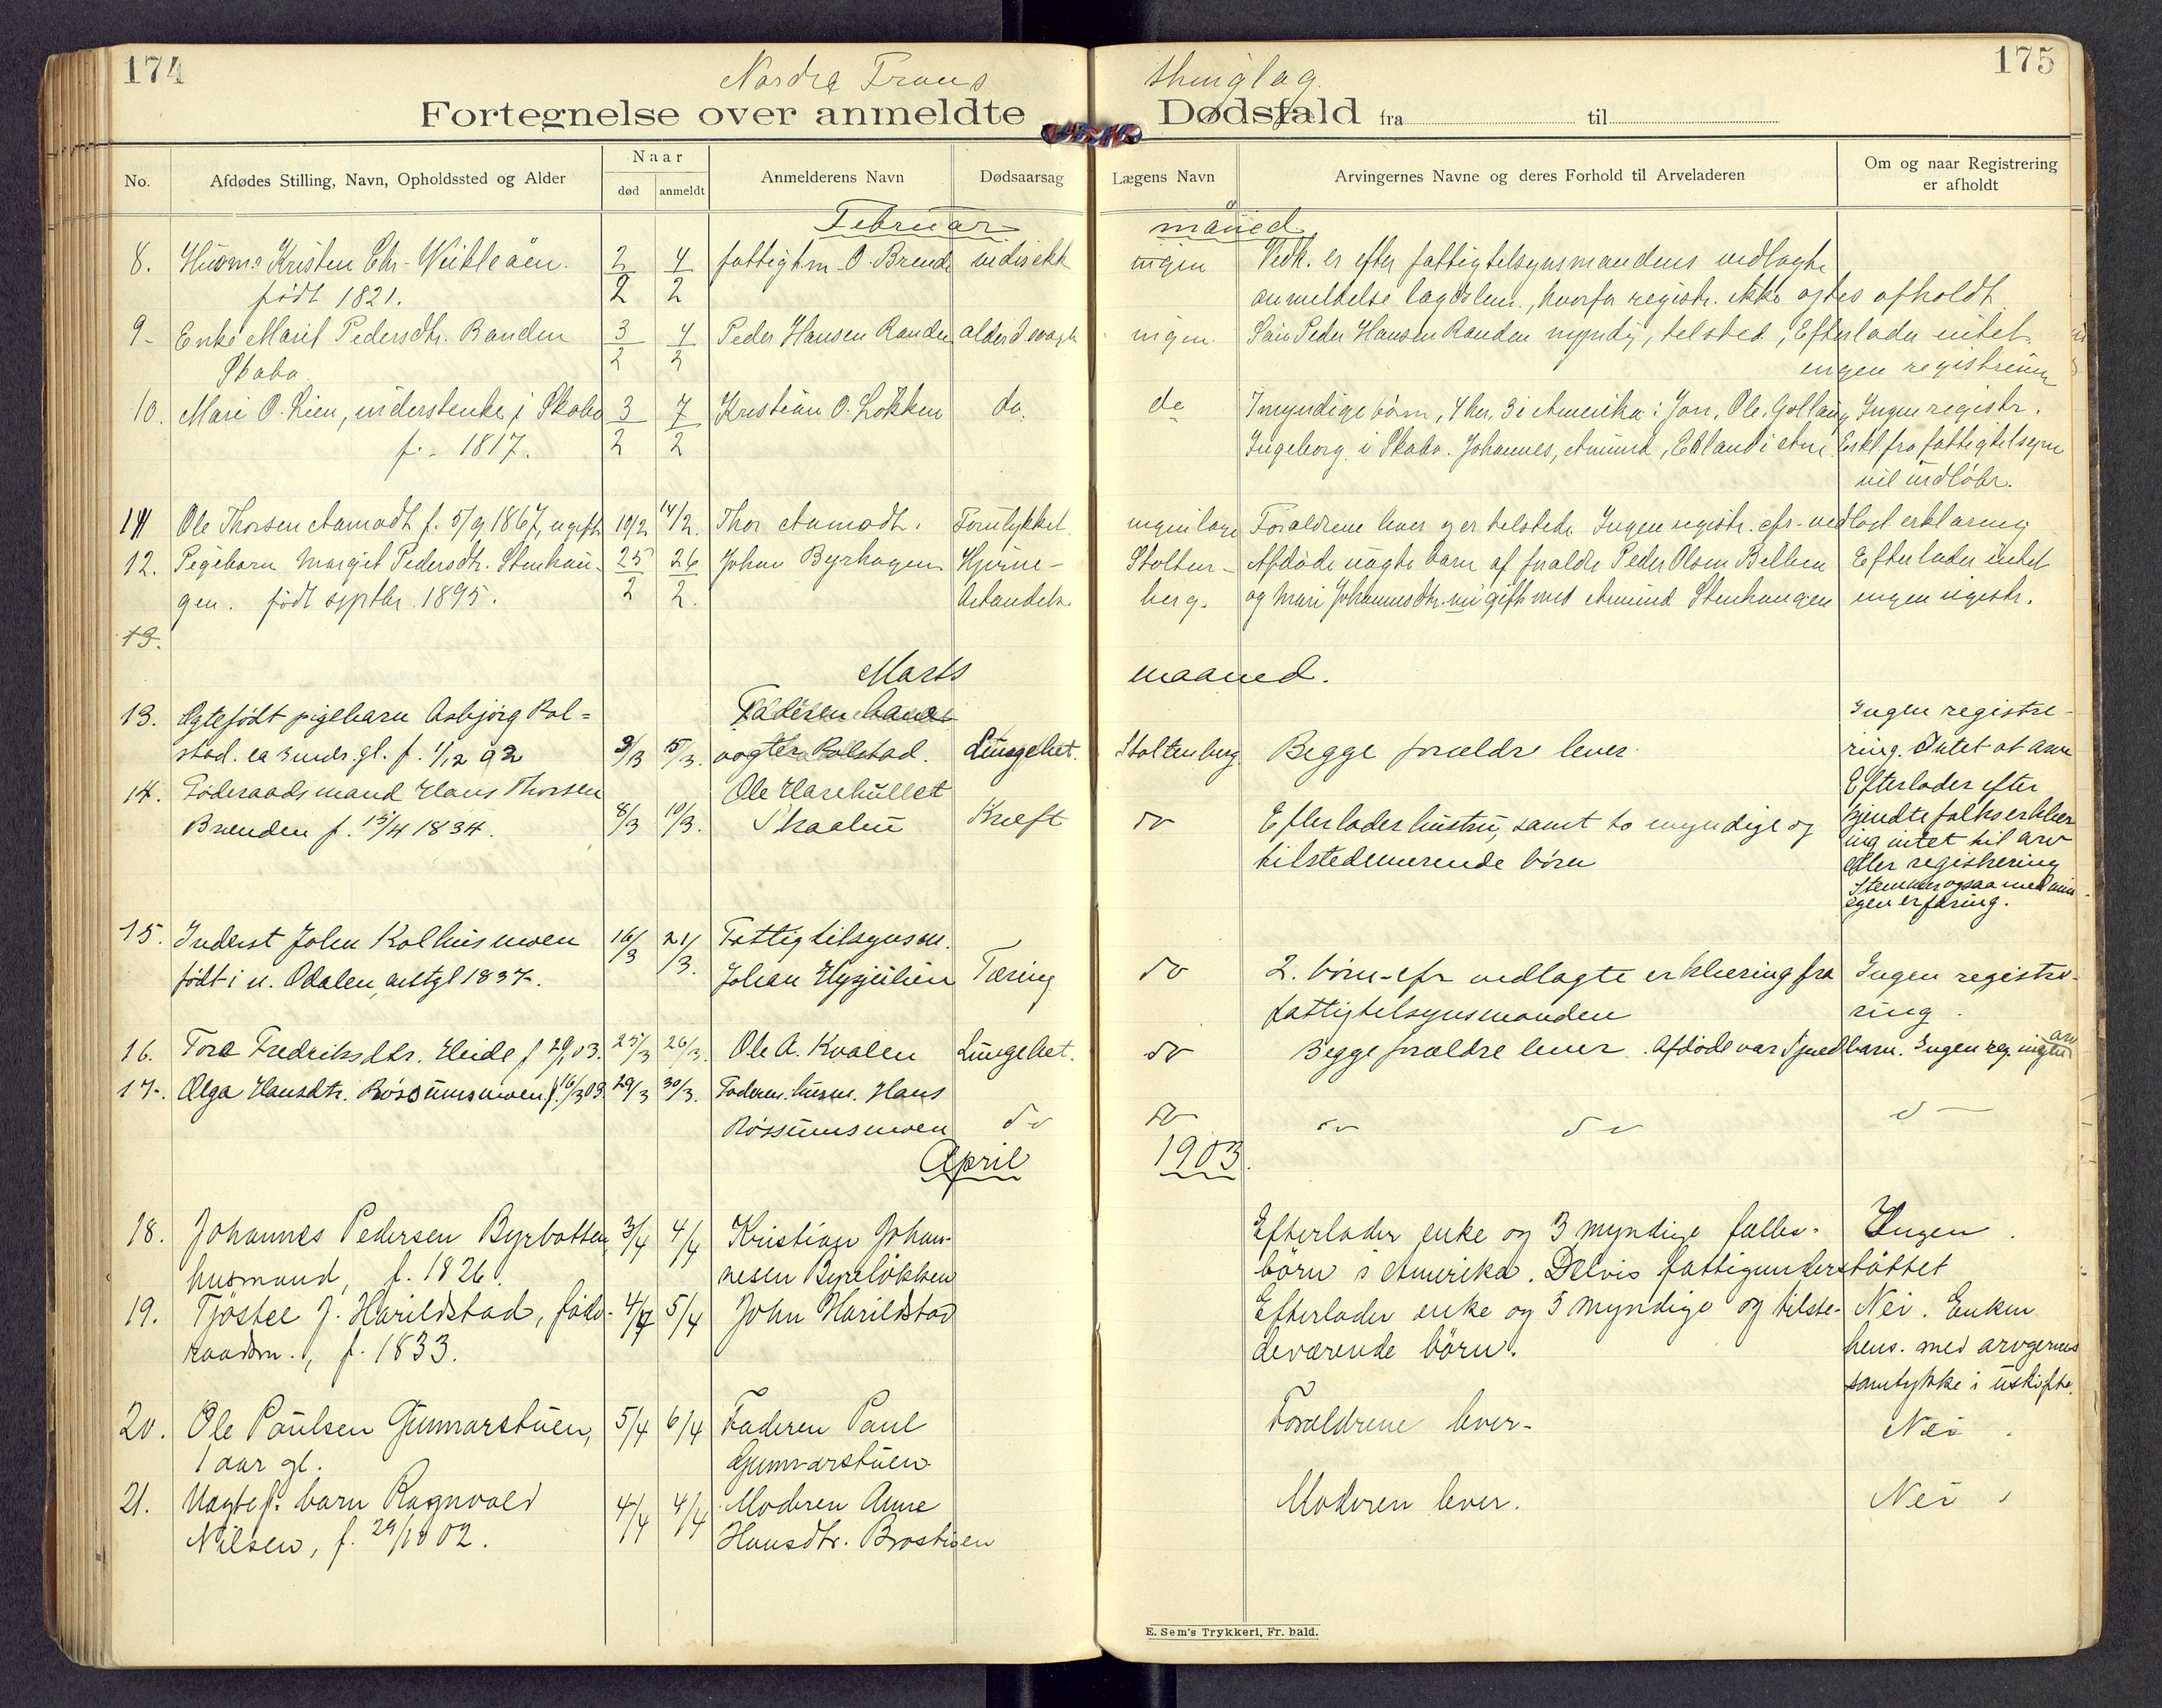 174
175
Nordre Frons thinglag.
Fortegnelse over anmeldte Dødsfald fra til
No. Afdødes Stilling, Navn, Opholdssted og Alder Naar død anmeldt Anmelderens Navn Dødsaarsag Lægens Navn Arvingernes Navne og deres Forhold til Arveladeren Om og naar Registrering er afholdt
Februar måned
8. Kristen Chr. 2/2 4/2 fattigt.m. O. Brende ingen Vedk. er efter fattigtilsynsmandens vedlagte
født 1821. anmeldelse lagdslem, hvorfor registr. ikke agtes afholdt
9 Enke Marit Pedersdtr. Randen 3/2 4/2 Peder Hansen Randen ingen Søn Peder Hansen Randen myndig, tilsted, Efterlader intet
Skabo. ingen registrering
10. Mari O. Lien, inderstenke i Skabo 3/2 7/2 Kristian O. Løkken do. do 7 myndige børn, 4 her, 3 i Amerika: Jon, Ole, Ingen registr.
f. 1817. Ingeborg i Skabo. Johannes, Amund, Erland i Am. Erkl. fra fattigtilsyn
vil indløbe.
11 Ole Thorsen Aamodt f. 5/9 1867, ugift 10/2 14/2. Thor Aamodt. Forulykket ingen læge Forældrene lever og er tilstede. Ingen registr. cfr. vedlagt erklæring
12. Pigebarn Margit Pedersdtr. Stenhau- 25/2 26/2. Johan Byrhagen Hjerne- Stolten- Afdøde uægte barn af foraldre Peder Olsen Efterlader intet
gen. født septbr. 1895. betændelse berg. og Mari Johannesdtr. nu gift med Amund Stenhaugen ingen registr.
13.
Marts maaned.
13. Ægtefødt pigebarn Asbjørg Rol= Faderen bane Ingen registre-
stad. ca 3 mdr. gl. f. 1/12 02 3/3 5/3. vogter Rolstad. Lungebet. Stoltenberg Begge forældre lever ring. Intet at arve
14. Føderaadsmand Hans Thorsen Ole Harehullet Efterlader efter
Brenden f. 15/4 1834. 8/3 10/3. Skaabu Kræft do Efterlader hustru, samt to myndige og kjendte folks erklær
tilstedeværende børn ing intet til arv
eller registrering
Stemmer ogsaa med min
egen erfaring.
15. Inderst John Kolhusmoen 16/3 21/3. Fattigtilsynsm.
født i n. Odalen, 1837. Johan Tæring do 2. børn - cfr vedlagte erklæring fra Ingen registre-
fattigtilsynsmanden ring.
16. Tora Fredriksdtr. Eide f 03. 25/3 26/3. Ole A. Kvalen Lungebet. do Begge forældre lever. Afdøde var spædbarn. Ingen reg. ingen arv
17. Olga Hansdtr. Røssumsmoen f. 16/3 03 29/3 30/3. Faderen husm. Hans
Røssumsmoen do do do do do
April 1903.
18. Johannes Pedersen Byrbotten, 3/4 4/4 Kristian Johan- Efterlader enke og 3 myndige fælles- Ingen.
husmand, f. 1826. nesen Byreløkken børn i Amerika. Delvis fattigunderstøttet
19. Tjøstel J. Harildstad, føde- 4/4 5/4 John Harildstad Efterlader enke og 5 myndige og tilste- Nei. Enken
raadsm., f. 1833. deværende børn. hens. med arvgernes
samtykke i uskifte.
20. Ole Paulsen Gunnarstuen, 5/4 6/4 Faderen Paul Forældrene lever. Nei.
1 aar gl. Gunnarstuen
21. Uægtef. barn Ragnvald 4/4 4/4 Moderen Anne Moderen lever. Nei
Nilsen, f. Hansdtr. Brostuen
E. Sem's Trykkeri, Fr. hald.